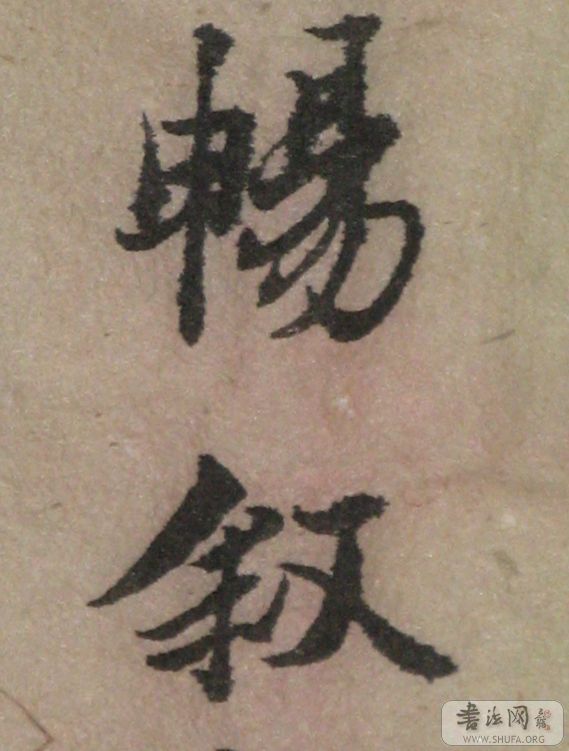 暢叙
書法网
WWW.SHUFA.ORG